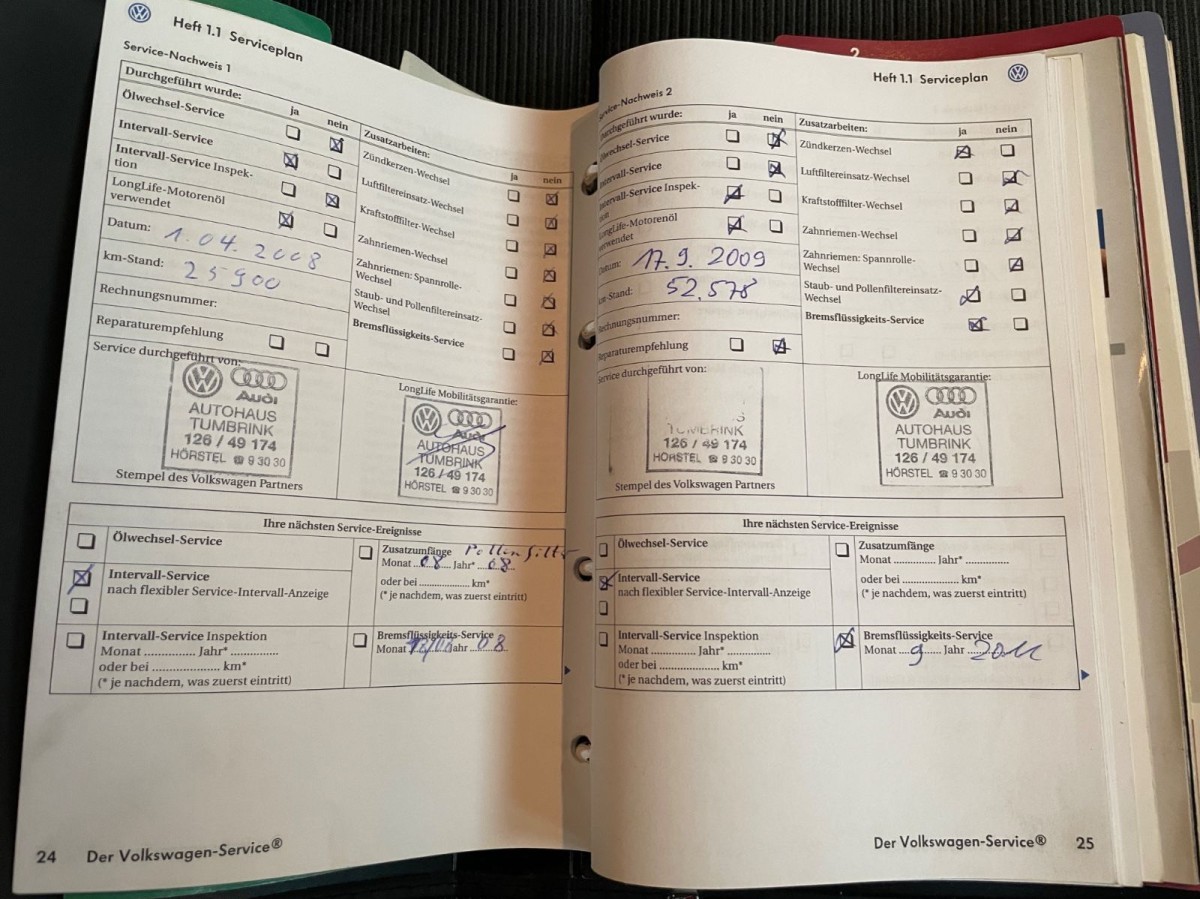 Heft 1.1 Serviceplan
Service-Nachweis 1
Durchgeführt wurde:
ja
nein
Ölwechsel-Service
Intervall-Service
Intervall-Service Inspek-
tion
LongLife-Motorenöl
verwendet
Datum: 1.04.2008
km-Stand: 25900
Rechnungsnummer:
Reparaturempfehlung
Zusatzarbeiten:
ja
nein
Zündkerzen-Wechsel
Luftfiltereinsatz-Wechsel
Kraftstofffilter-Wechsel
Zahnriemen-Wechsel
Zahnriemen: Spannrolle-
Wechsel
Staub- und Pollenfiltereinsatz-
Wechsel
Bremsflüssigkeits-Service
Service durchgeführt von:
Audi
AUTOHAUS
TUMBRINK
126 / 49 174
HÖRSTEL ☎ 9 30 30
Stempel des Volkswagen Partners
LongLife Mobilitätsgarantie:
Audi
AUTOHAUS
TUMBRINK
126 / 49 174
HÖRSTEL ☎ 9 30 30
Ihre nächsten Service-Ereignisse
Ölwechsel-Service
Intervall-Service
nach flexibler Service-Intervall-Anzeige
Intervall-Service Inspektion
Monat .................. Jahr* ..................
oder bei .................. km*
(* je nachdem, was zuerst eintritt)
Zusatzumfänge Pollenfilter
Monat 08 Jahr* 08
oder bei .................. km*
(* je nachdem, was zuerst eintritt)
Bremsflüssigkeits-Service
Monat Jahr 08
24 Der Volkswagen-Service®
Heft 1.1 Serviceplan
Service-Nachweis 2
Durchgeführt wurde:
ja
nein
Ölwechsel-Service
Intervall-Service
Intervall-Service Inspek-
tion
LongLife-Motorenöl
verwendet
Datum: 17.9.2009
km-Stand: 52.578
Rechnungsnummer:
Reparaturempfehlung
Zusatzarbeiten:
ja
nein
Zündkerzen-Wechsel
Luftfiltereinsatz-Wechsel
Kraftstofffilter-Wechsel
Zahnriemen-Wechsel
Zahnriemen: Spannrolle-
Wechsel
Staub- und Pollenfiltereinsatz-
Wechsel
Bremsflüssigkeits-Service
Service durchgeführt von:
S
TUMBRINK
126 / 49 174
HÖRSTEL ☎ 9 30 30
Stempel des Volkswagen Partners
LongLife Mobilitätsgarantie:
Audi
AUTOHAUS
TUMBRINK
126 / 49 174
HÖRSTEL ☎ 9 30 30
Ihre nächsten Service-Ereignisse
Ölwechsel-Service
Intervall-Service
nach flexibler Service-Intervall-Anzeige
Intervall-Service Inspektion
Monat .................. Jahr* ..................
oder bei .................. km*
(* je nachdem, was zuerst eintritt)
Zusatzumfänge
Monat ............ Jahr* ..................
oder bei .................. km*
(* je nachdem, was zuerst eintritt)
Bremsflüssigkeits-Service
Monat 9 Jahr 2011
Der Volkswagen-Service® 25
2